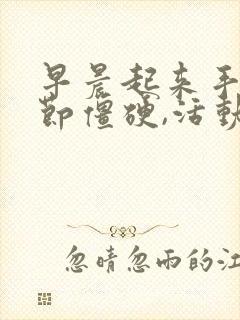 早晨起来手
节僵硬,活动
忽晴忽雨的江